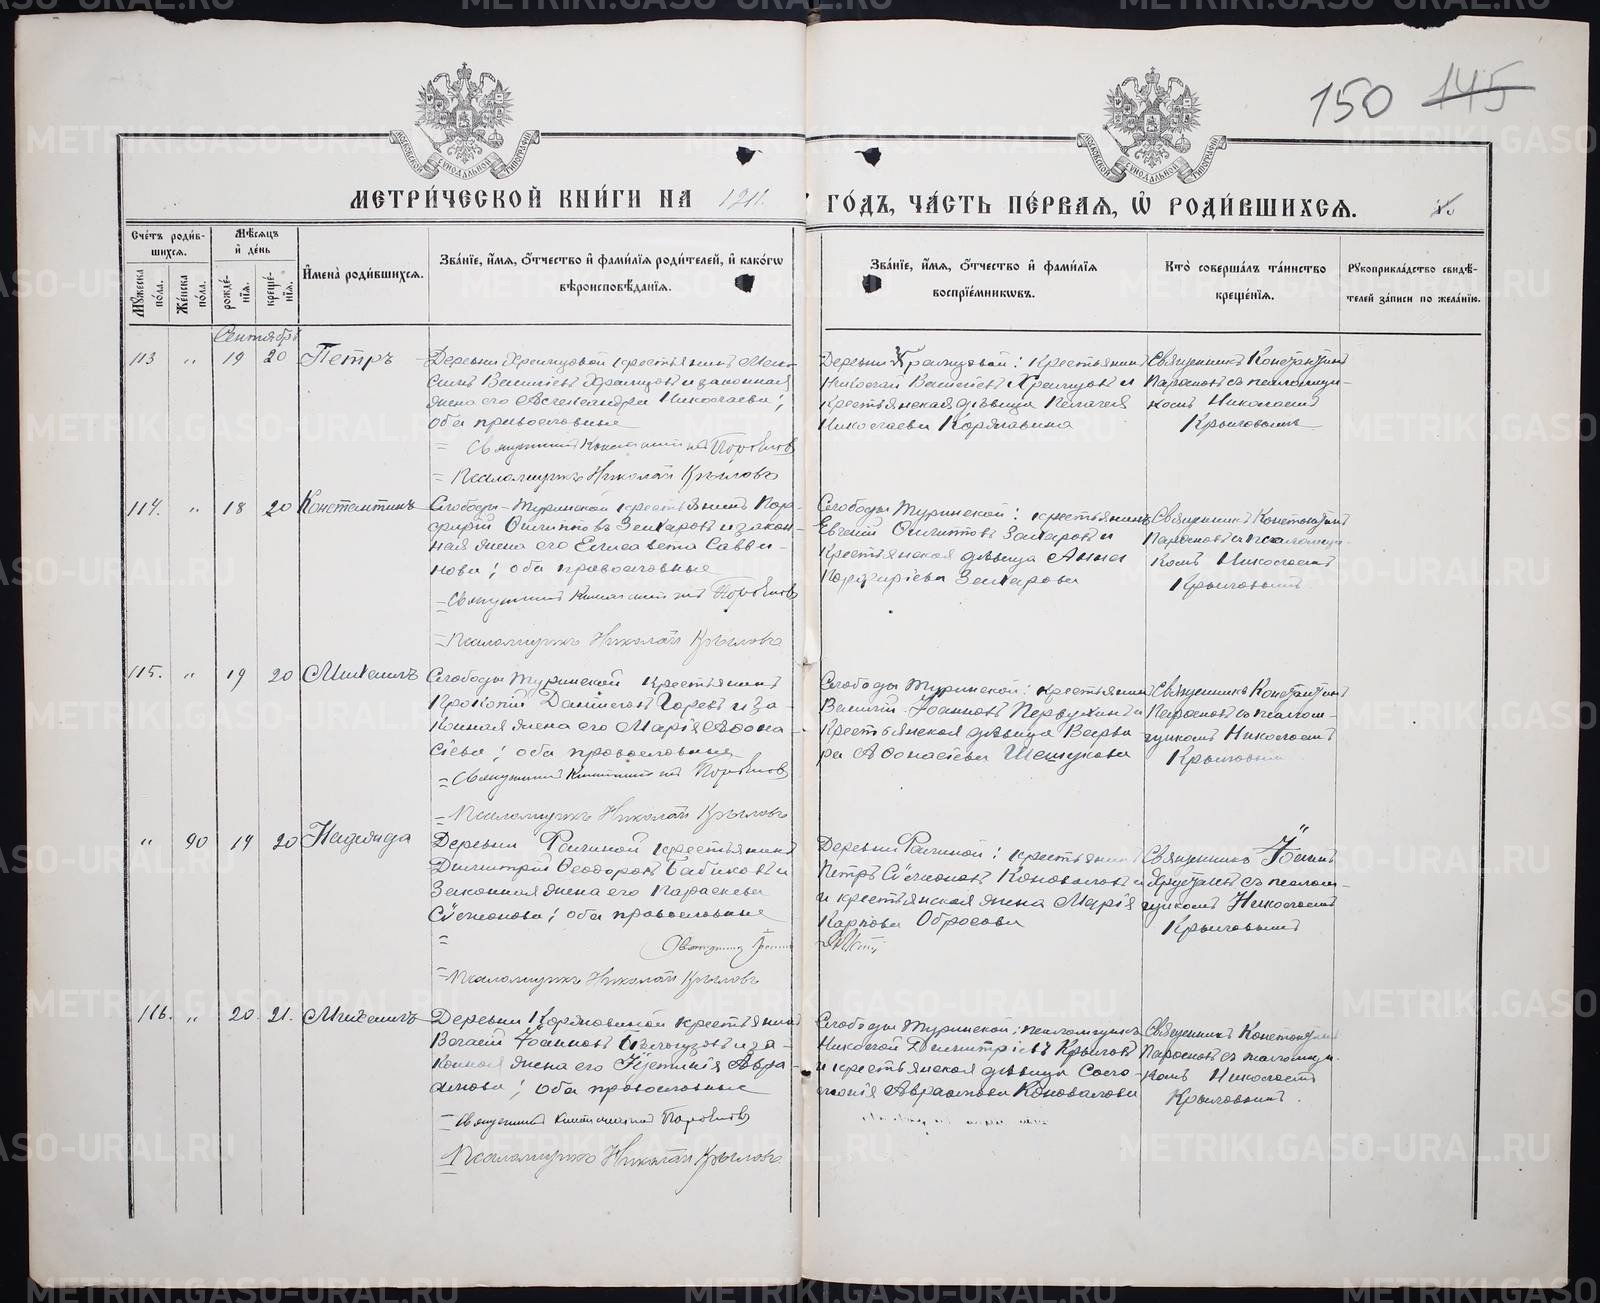 150 145
МОСКОВСКОЙ СѴНОДАЛЬНОЙ ТИПОГРАФІИ
МОСКОВСКОЙ СѴНОДАЛЬНОЙ ТИПОГРАФІИ
МЕТРИ́ЧЕСКОЙ КНИ́ГИ НА 1911. ГО́ДЪ, ЧА́СТЬ ПЕ́РВАЯ, Ѿ РОДИ́ВШИХСЯ.
Сче́тъ роди́в-
шихся.
Мѣ́сяцъ
и҆ де́нь
Мꙋ́жеска по́ла.
Же́нска по́ла.
рожде́-
нїя.
креще́-
нїя.
И҆мена̀ роди́вшихся.
Зва́нїе, и҆́мя, ѻ҆́тчество и҆ фами́лїя роди́телей, и҆ како́гѡ
вѣроисповѣ́данїя.
Зва́нїе, и҆́мя, ѻ҆́тчество и҆ фами́лїя
воспрїе́мникѡвъ.
Кто̀ соверша́лъ та́инство
креще́нїя.
Рꙋкоприкла́дство свидѣ́-
телей за́писи по жела́нїю.
Сентябрь
113 " 19 20 Петръ
Деревни Храмцовой крестьянинъ
Василіевъ Храмцовъ и законная
жена его Александра Николаева;
оба православные
= Священникъ Константинъ
= Псаломщикъ Николай Крыловъ
Деревни Храмцовой: крестьянинъ
Николай Василіевъ Храмцовъ и
крестьянская дѣвица Пелагея
Николаева Корякина
Священникъ Константинъ
съ псаломщи-
комъ Николаемъ
Крыловымъ
114. " 18 20 Константинъ
Слободы-Туринской крестьянинъ Пор-
фирій Филипповъ Захаровъ и закон-
ная жена его Елисавета Савви-
нова; оба православные
= Священникъ Константинъ
= Псаломщикъ Николай Крыловъ
Слободы Туринской: крестьянинъ
Евгеній Филипповъ Захаровъ и
крестьянская дѣвица Анна
Порфиріева Захарова
Священникъ Константинъ
и псаломщи-
комъ Николаемъ
Крыловымъ
115. " 19 20 Михаилъ
Слободы Туринской крестьянинъ
Прокопій Даніиловъ Горевъ и за-
конная жена его Марія Афона-
сіева; оба православные
= Священникъ Константинъ
= Псаломщикъ Николай Крыловъ
Слободы Туринской: крестьянинъ
Василій Іоанновъ Первухинъ и
крестьянская дѣвица Варва-
ра Афонасіева Шешукова
Священникъ Константинъ
съ псалом-
щикомъ Николаемъ
Крыловымъ
" 90 19 20 Надежда
Деревни Фалиной крестьянинъ
Димитрій Феодоровъ Бабиновъ и
законная жена его Параскева
Сѵмеонова; оба православные
= Священникъ
= Псаломщикъ Николай Крыловъ
Деревни Фалиной: крестьянинъ
Петръ Сѵмеоновъ Коноваловъ и
и крестьянская жена Марія
Карпова Обросова
Священникъ Іоаннъ
съ псалом-
щикомъ Николаемъ
Крыловымъ
116. " 20. 21. Михаилъ
Деревни Коряковиной крестьянинъ
Іоанновъ и за-
конная жена его Іустинія Авра-
амова; оба православные
= Священникъ Константинъ
= Псаломщикъ Николай Крыловъ
Слободы Туринской: псаломщикъ
Николай Димитріевъ Крыловъ
и крестьянская дѣвица Соло-
монія Авраамова Коновалова
Священникъ Константинъ
съ псаломщи-
комъ Николаемъ
Крыловымъ.
METRIKI.GASO-URAL.RU